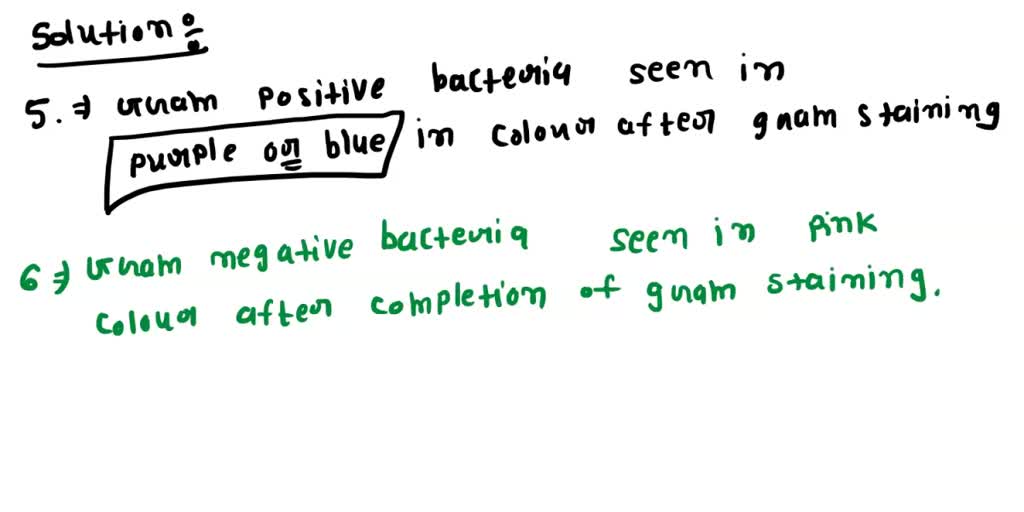 Solution :
5. ⇒ Gram positive bacteria seen in
purple or blue in colour after gram staining
6 ⇒ Gram negative bacteria seen in pink
colour after completion of gram staining.